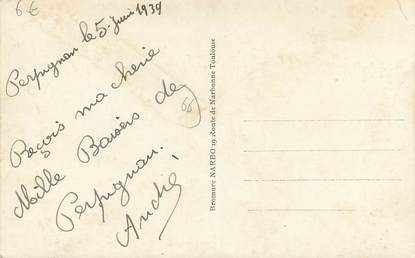 6€
Perpignan le 5 Juin 1939
Reçois ma cherie
Mille Baisers de
Perpignan.
André
66
Bromure NARBO 19 Route de Narbonne Toulouse